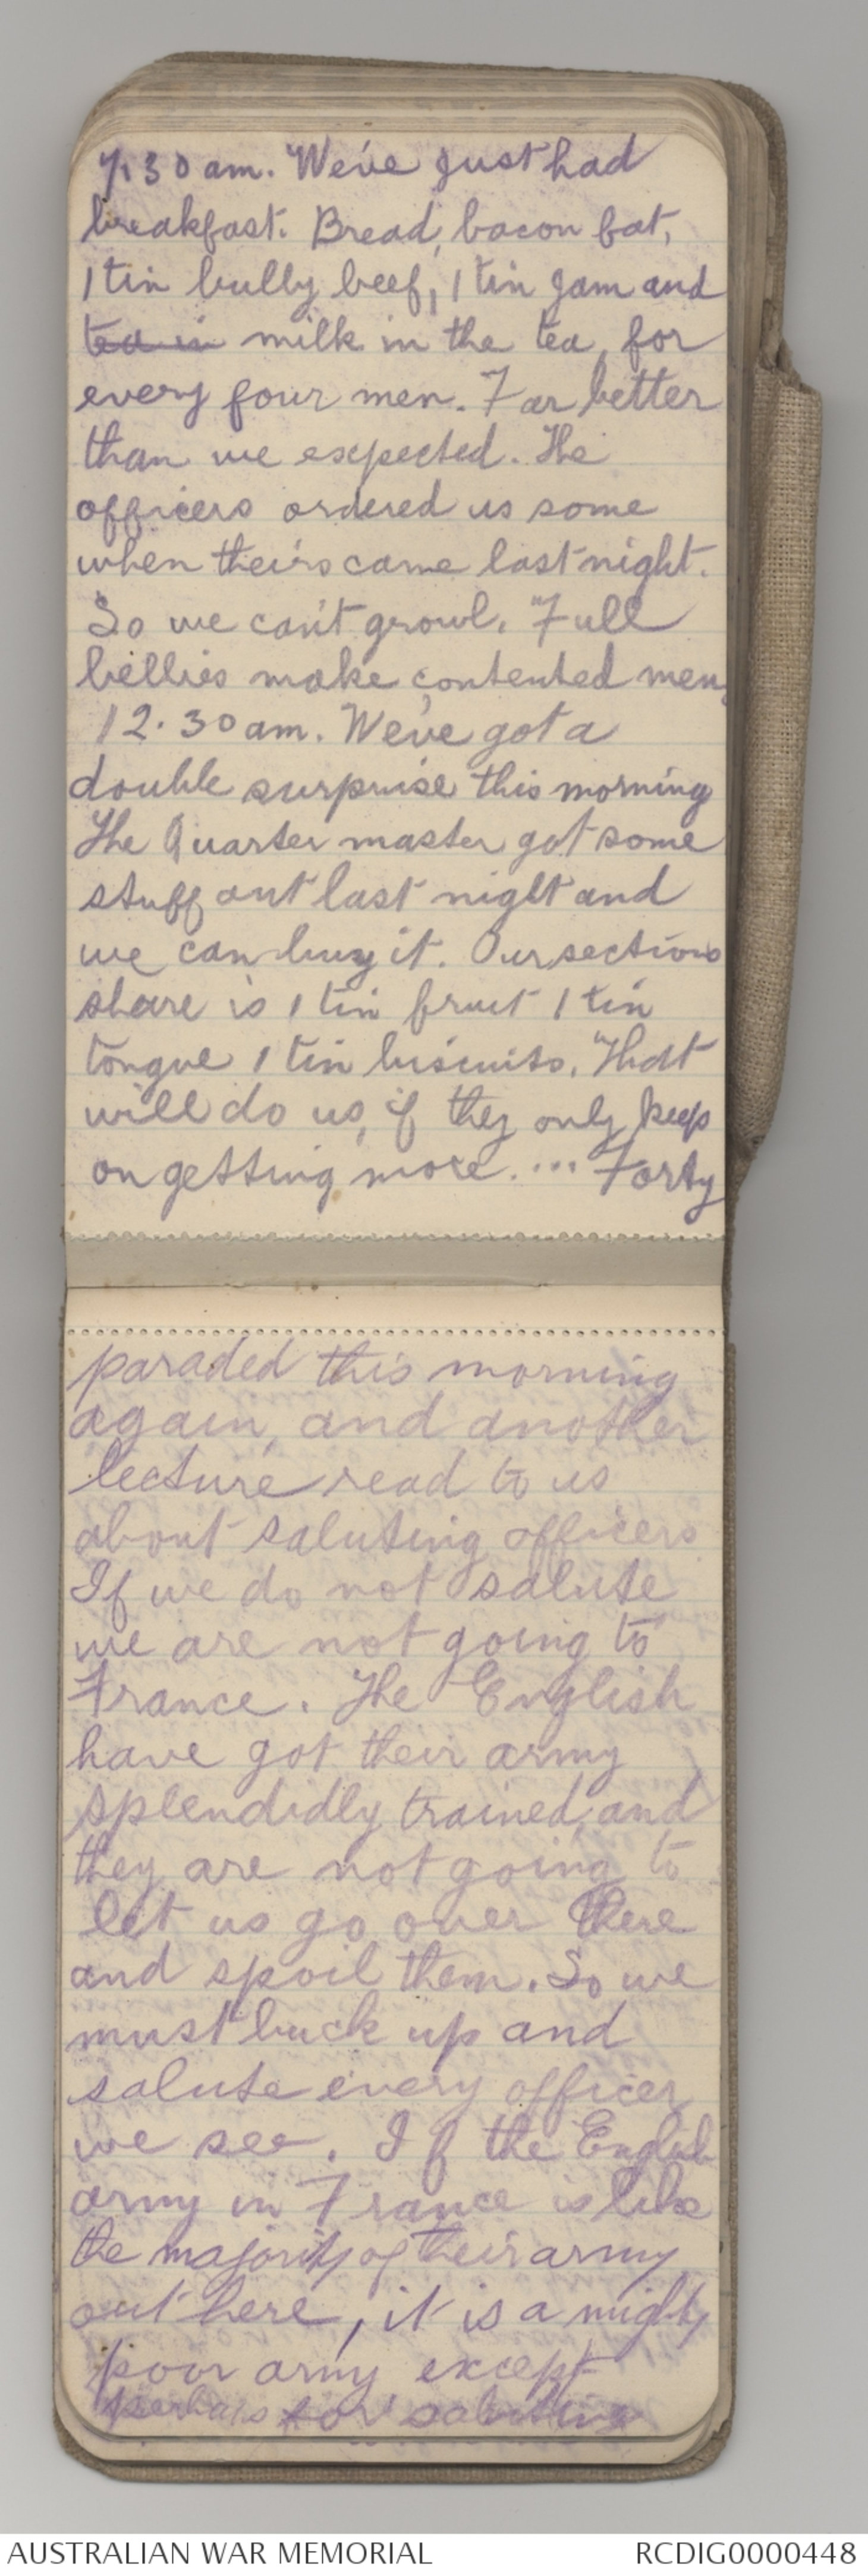 7.30 am. We've just had
breakfast. Bread, bacon fat,
1 tin bully beef, 1 tin jam and
tea in milk in the tea, for
every four men. Far better
than we expected. The
officers ordered us some
when theirs came last night.
So we can't growl. "Full
bellies make contented men,
12.30 am. We've got a
double surprise this morning
The Quarter master got some
stuff out last night and
we can buy it. Our sections
share is 1 tin fruit 1 tin
tongue 1 tin biscuits. That
will do us, if they only keep
on getting more. ... Forty
paraded this morning
again, and another
lecture read to us
about saluting officers
If we do not salute
we are not going to
France. The English
have got their army
splendidly trained, and
they are not going to
let us go over there
and spoil them. So we
must buck up and
salute every officer
we see. If the English
army in France is like
the majority of their army
out here, it is a mighty
poor army, except
perhaps for saluting
AUSTRALIAN WAR MEMORIAL
RCDIG0000448